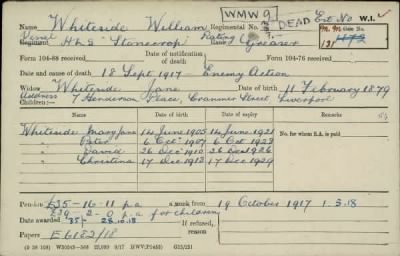 WMW 9
DEAD
Ext No W.I.
Name Whiteside William Regimental No.
Vessel Regiment HLS "Stonecrop" Rating Rank Greaser
131
Date of notification of death
Form 104-88 received Form 104-76 received
Date and cause of death 18 Sept 1917 - Enemy Action
Widow Whiteside Jane Date of birth 11 February 1879
Address 7 Henderson Place, Cranmer Street Liverpool
Children:-
Names Date of birth Date of expiry Remarks
No. for whom S.A. is paid
Whiteside Mary Jane 14 June 1905 14 June 1921
" Peter 6 Octr 1907 6 Oct 1923
" David 26 Dec 1910 26 Dec 1926
" Christina 17 Dec 1913 17 Dec 1929
Pension £35-16-11 p.a. a week from 19 October 1917 1.5.18
£39-2-0 p.a. for children
Date awarded 28.10.18 If refused, reason
Papers E6182/18